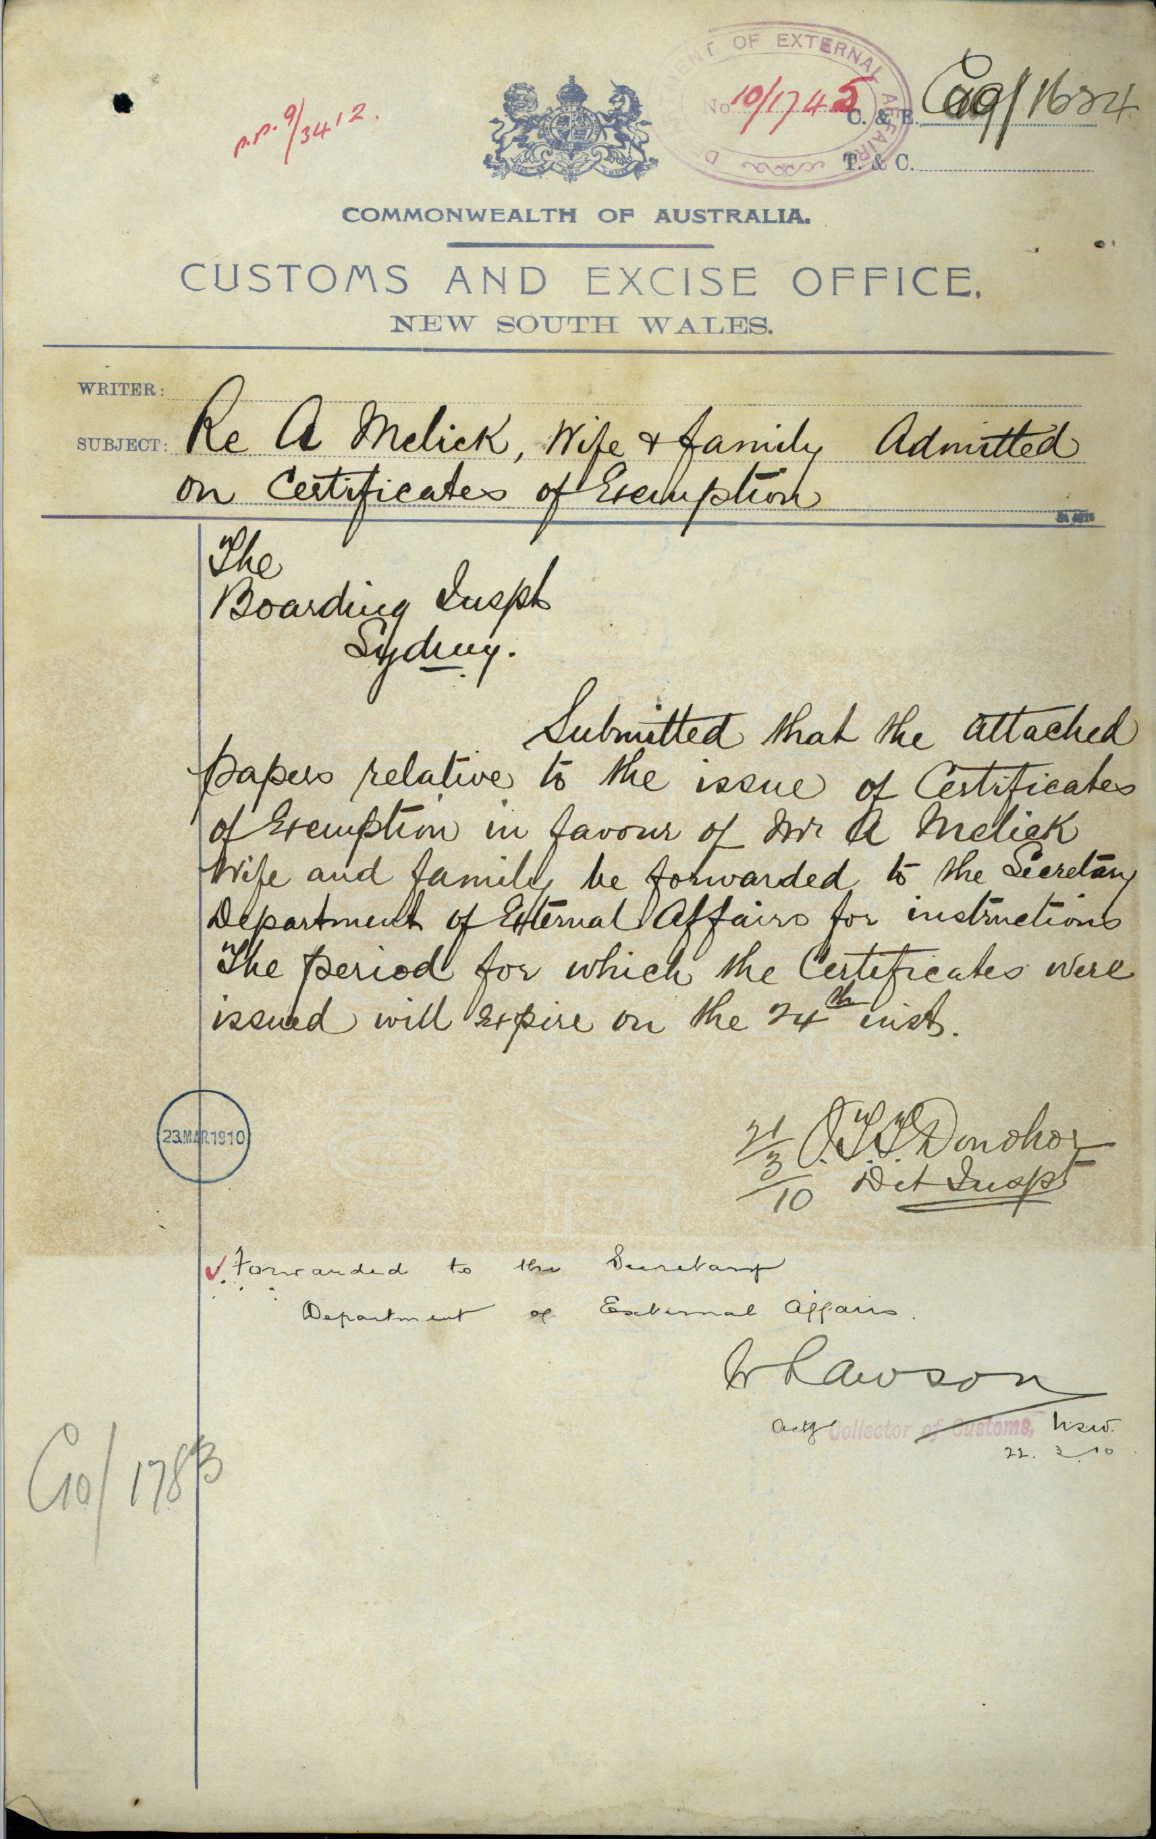 p.p. 9/3412.
DEPARTMENT OF EXTERNAL AFFAIRS
No 10/1745
C. & E.
/1634
T. & C.
COMMONWEALTH OF AUSTRALIA.
CUSTOMS AND EXCISE OFFICE,
NEW SOUTH WALES.
WRITER:
SUBJECT: Re A Melick, Wife & family Admitted
on Certificates of Exemption
The
Boarding Inspt
Sydney.
Submitted that the attached
papers relative to the issue of Certificates
of Exemption in favour of Mr A Melick
Wife and family be forwarded to the Secretary
Department of External Affairs for instructions
The period for which the Certificates were
issued will expire on the 24th inst.
23.MAR.1910
21/3/10 J.T.T. Donohoe
Det Inspt
Forwarded to the Secretary
Department of External Affairs.
W Lawson
Actg Collector of Customs, NSW.
22.3.10
C10/1783